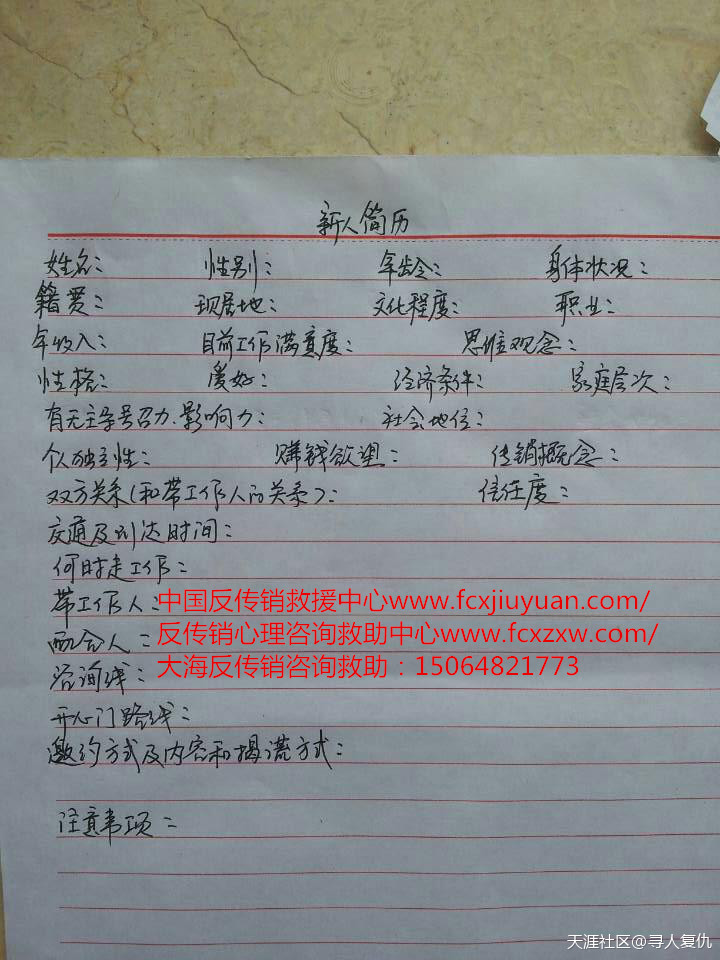 新人简历
姓名： 性别： 年龄： 身体状况：
籍贯： 现居地： 文化程度： 职业：
年收入： 目前工作满意度： 思维观念：
性格： 爱好： 经济条件： 家庭层次：
有无主导号召力.影响力： 社会地位：
个人独立性： 赚钱欲望： 传销概念：
双方关系(和带工作人的关系)： 信任度：
交通及到达时间：
何时走工作：
带工作人：中国反传销救援中心www.fcxjiuyuan.com/
配合人：反传销心理咨询救助中心www.fcxzxw.com/
咨询线：大海反传销咨询救助：15064821773
开心门路线：
邀约方式及内容和揭谎方式：
注意事项：
天涯社区@寻人复仇